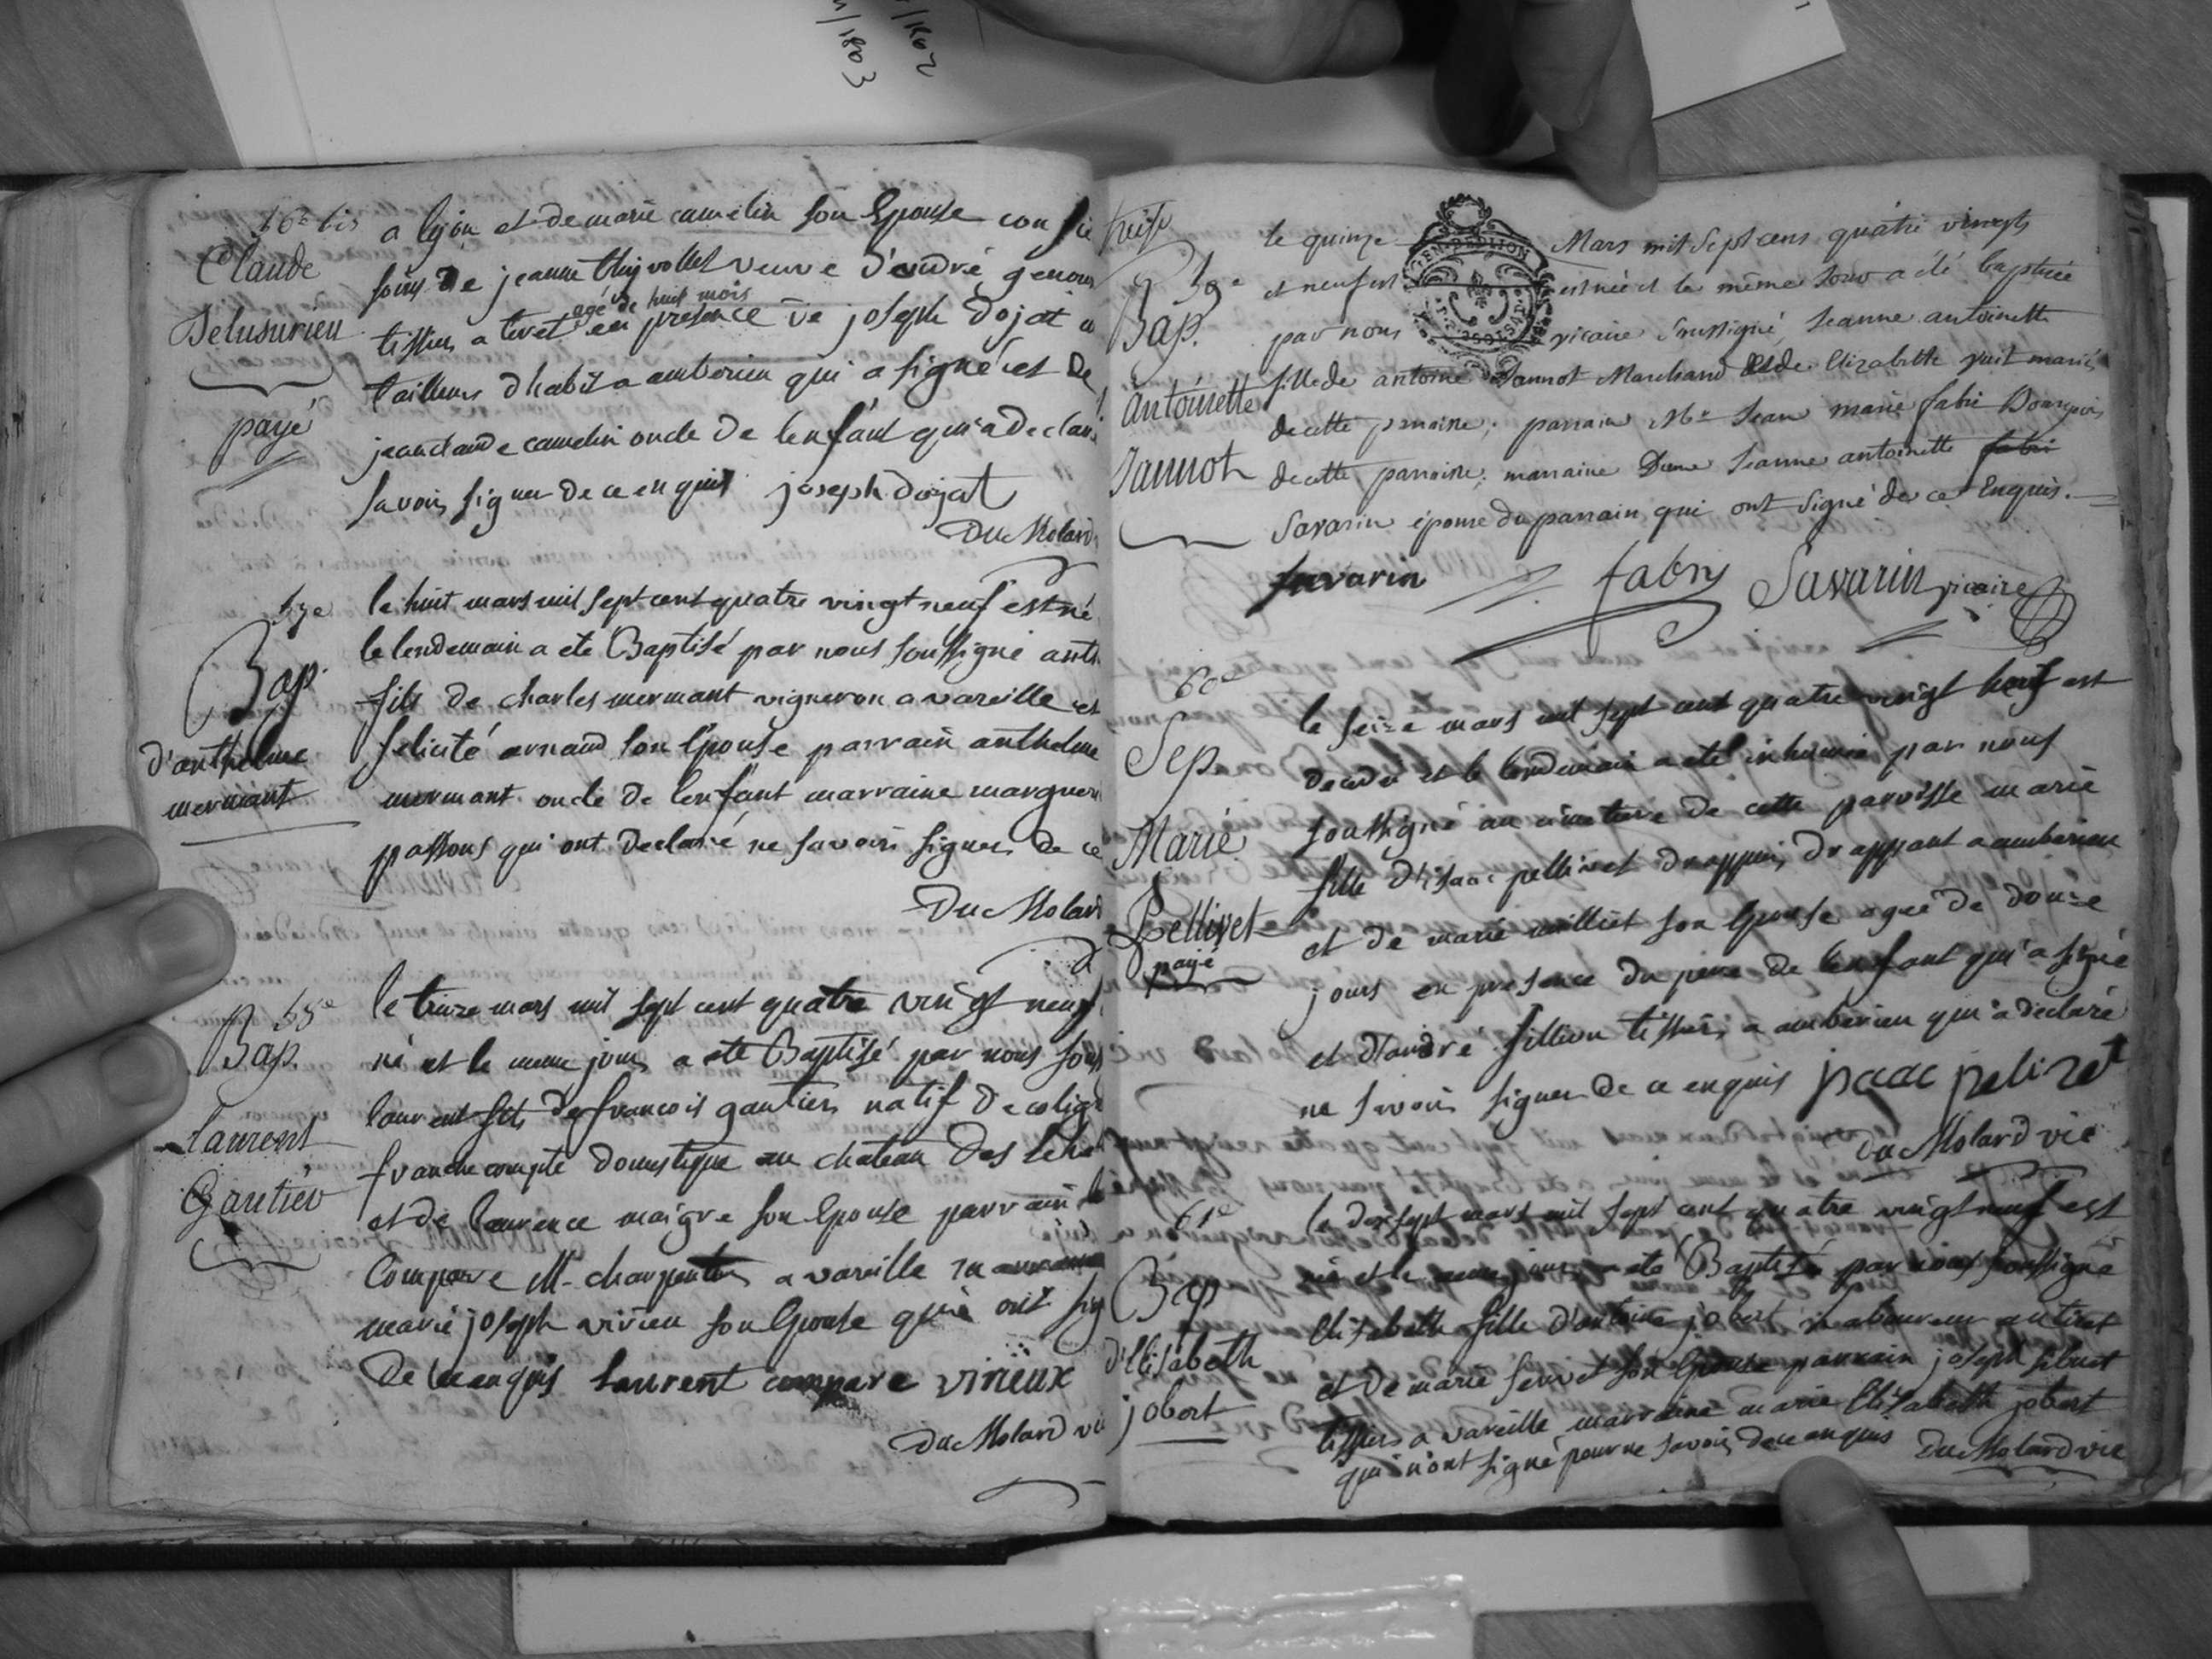 56e bis
Claude
Delusurieu
payé
a lyon et de marie camelin son Epouse confié
soins de jeanne theyvollet veuve d'andré genou
tissier a tiret agé de huit mois en presence de joseph dojat
tailleurs dhabit a amberieu qui a signé et de
jean claude camelin oncle de lenfant qui a declaré
savoir signer de ce enquis joseph dojat
Du Molard
57e
Bap.
d'anthelme
mermant
le huit mars mil sept cent quatre vingt neuf est né
le lendemain a ete Baptisé par nous soussigné anth
fils de charles mermant vigneron a vareille et
felicité arnaud son Epouse parrain anthelme
mermant oncle de lenfant marraine marguer
passons qui ont declaré ne savoir signer de ce
Du Molard
58e
Bap.
Laurent
Gautier
le treize mars mil sept cent quatre vingt neuf
né et le meme jour a ete Baptisé par nous sous
laurent fils de francois gautier natif de colig
franche compte domestique au chateau des
et de laurence maigre son Epouse parrain
Compare M. charpentier a vareille
marie joseph virieu son Epouse qui ont sig
de ce enquis laurent compare virieux
Du Molard vic
treize
59e
Bap.
antoinette
Jannot
le quinze Mars mil sept cens quatre vingts
et neuf est est née et le même jour a été baptisée
par nous vicaire soussigné, Jeanne antoinette
GEN. DE LYON
fille de antoine Jannot Marchand et de Elizabeth mariés
de cette paroisse; parrain Mr Jean marie fabri Bourgeois
de cette paroisse; marraine Dame Jeanne antoinette fabri
Savarin épouse du parrain qui ont signé de ce Enquis.
Savarin fabry Savarin vicaire
60e
Sep
Marie
Pellivet
payé
le seize mars mil sept cent quatre vingt neuf est
decedée et le lendemain a eté inhumée par nous
soussigné au cimetiere de cette paroisse marie
fille d'isaac pellivet drappier drappant a amberieu
et de marie milliet son Epouse agée de douze
jours en presence du pere de lenfant qui a signé
et d'andré fillion tissier a amberieu qui a declaré
ne savoir signer de ce enquis isaac pelivet
du Molard vic
61e
Bap
d'Elisabeth
jobert
le dixsept mars mil sept cent quatre vingt neuf est
née et le meme jour a ete Baptisée par nous soussigné
Elisabeth fille d'antoine jobert laboureur au tiret
et de marie servet son Epouse parrain joseph
tissier a vareille marraine marie Elisabeth jobert
qui n'ont signé pour ne savoir de ce enquis Du Molard vic